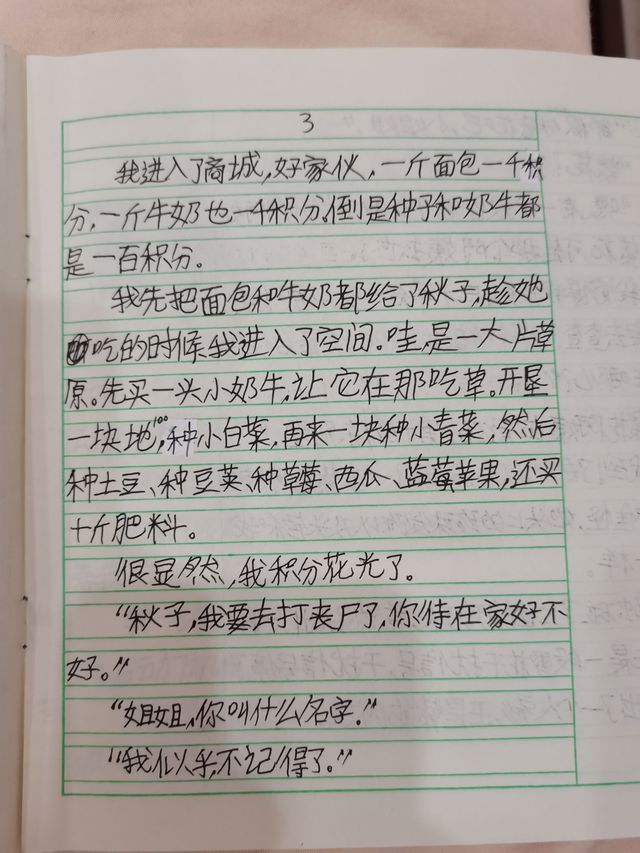 3
我进入了商城,好家伙,一斤面包一千积
分,一斤牛奶也一千积分,倒是种子和奶牛都
是一百积分。
我先把面包和牛奶都给了秋子,趁她
吃的时候,我进入了空间。哇,是一大片草
原。先买一头小奶牛,让它在那吃草。开垦
一块地,种小白菜,再来一块种小青菜,然后
种土豆、种豆荚、种草莓、西瓜、蓝莓苹果,还买
十斤肥料。
很显然,我积分花光了。
“秋子,我要去打丧尸了,你待在家好不
好。”
“姐姐,你叫什么名字。”
“我似乎不记得了。”